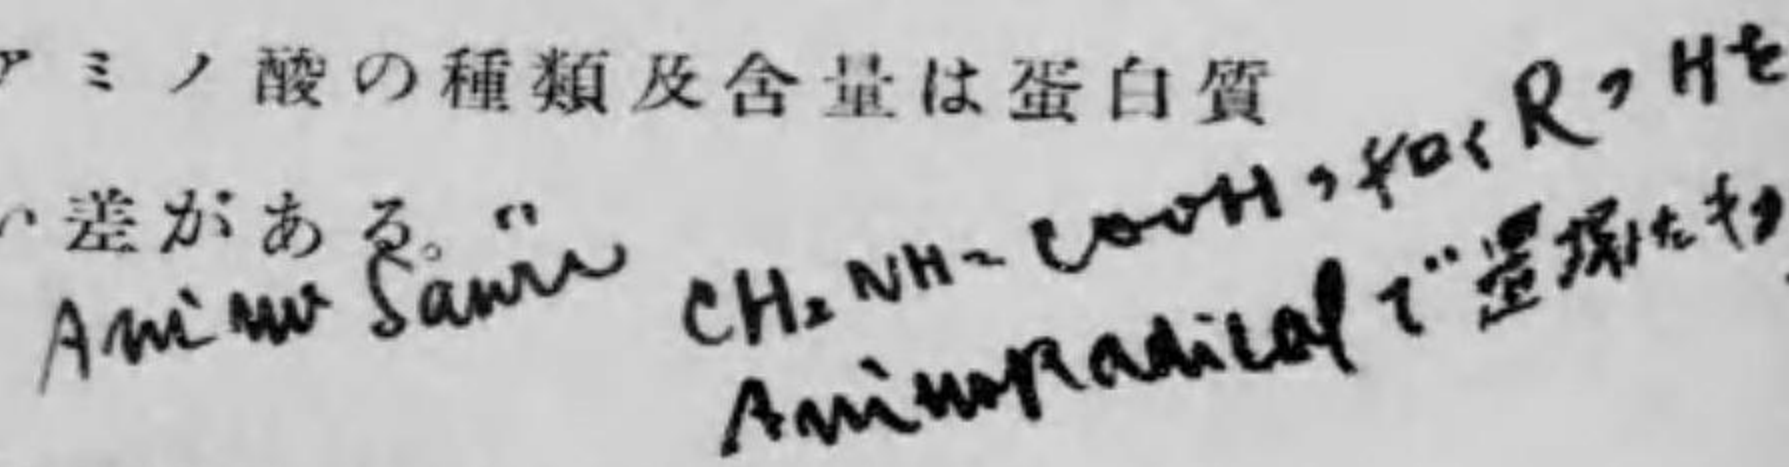 アミノ酸の種類及含量は蛋白質
い差がある。
Amino Säure
CH₂NH-COOH,如くR,Hを
AminoRadicalで置換したもの